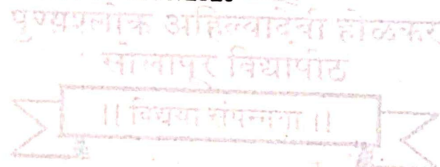 पुण्यश्लोक अहिल्यादेवी होळकर
सोलापूर विद्यापीठ
|| विद्यया संपन्नता ||